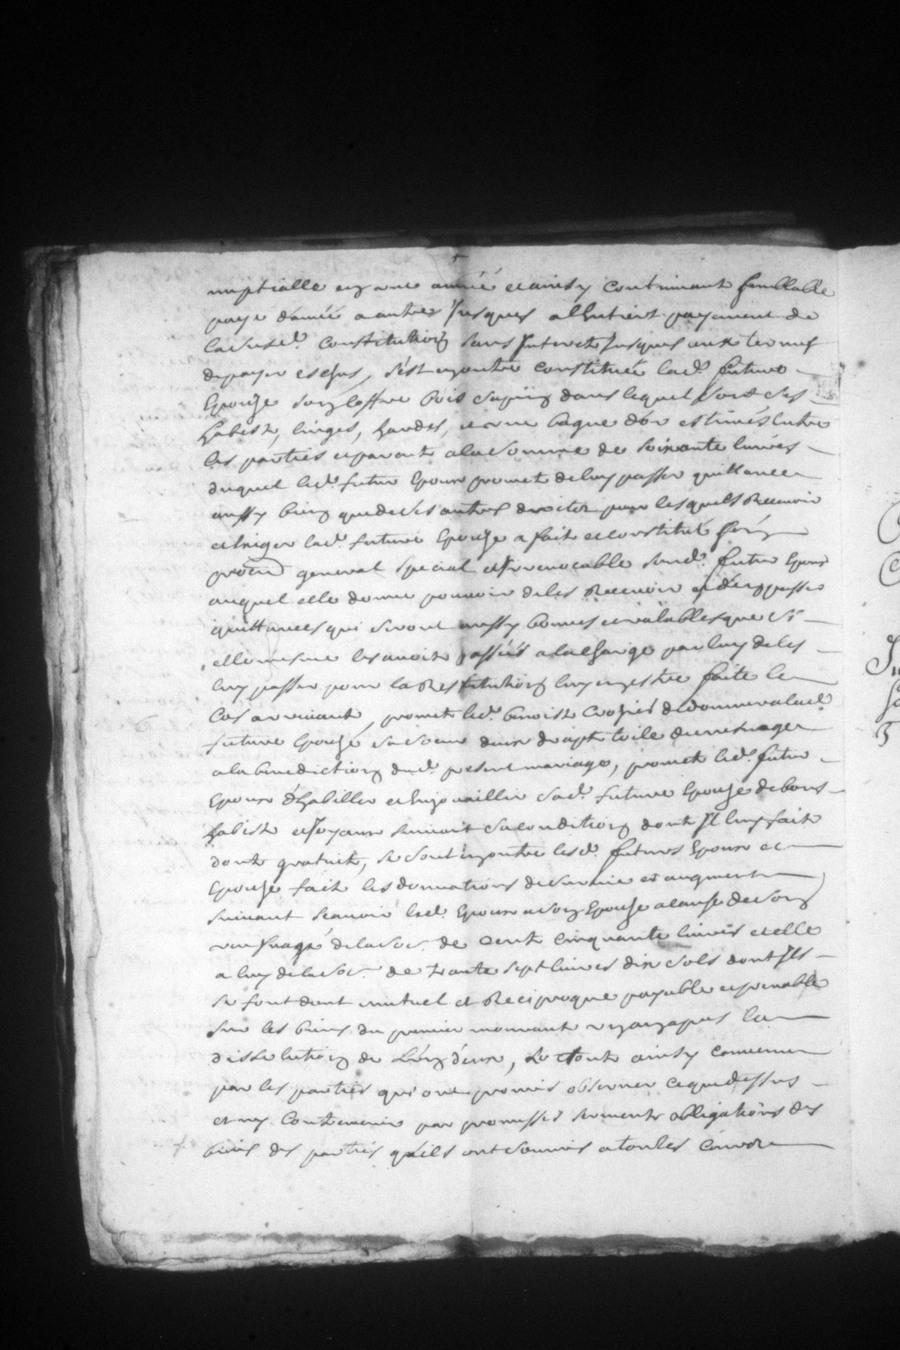 nuptialle en une année et ainsy continuant semblable
paye danée a autres Jusques alhentiere payement de
lasusd.e constitution sans Interets Jusques aux termes
de payer eschus, sest en outre constituée lad.e future
Epouze son coffre bois sapin dans lequel sont ses
habits, linges, hardes, et une bague dor estimés entre
les parties aparoir a la somme de soixante livres
duquel led. futur Epoux promet de luy passer quittance
aussy bien que de ses autres droits pour lesquels Recevoir
et Exiger lad.e future Epouze a fait et constitué son
procur general special et Irrevocable sond. futur Epoux
auquel elle donne pouvoir de les Recevoir et d'en passer
quittances qui seront aussy bonnes et valables que si
elle mesme les avoit passées a la charge par luy de les
luy passer pour la Restitution luy en estre faite le
Cas arrivant, promet led. benoist de donner a lad.e
future Epouze sa soeur deux draps toile de menager
a la benediction dud. present mariage, promet led. futur
Epoux d'habiller et Enjouailler sad.e future Epouze de bons
habits et Joyaux suivant sa condition dont Il luy fait
dont gratuit, se sont en outre lesd. futurs Epoux et
Epouze fait les donnations de survie et augment
suivant scavoir led. Epoux a son Epouze a cause de son
de la so.e de Cent cinquante livres et elle
a luy de la so.e de trante sept livres dix sols dont Ils
se font dont mutuel et Reciproque payable et prenable
sur les biens du premier mourant apres la
dissolution de L'un d'eux, Le tout ainsy convenu
par les parties qui ont promis observer ce que dessus
et ny contrevenir par promesses serments obligations des
biens des parties qu'ils ont soumis a toutes cours